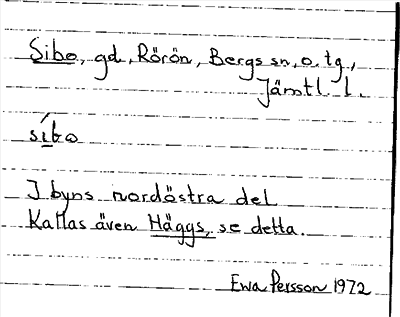 Sibo, gd, Rörön, Bergs sn, o. tg.,
Jämtl. l.
síbo
I byns nordöstra del
Kallas även Häggs, se detta.
Ewa Persson 1972